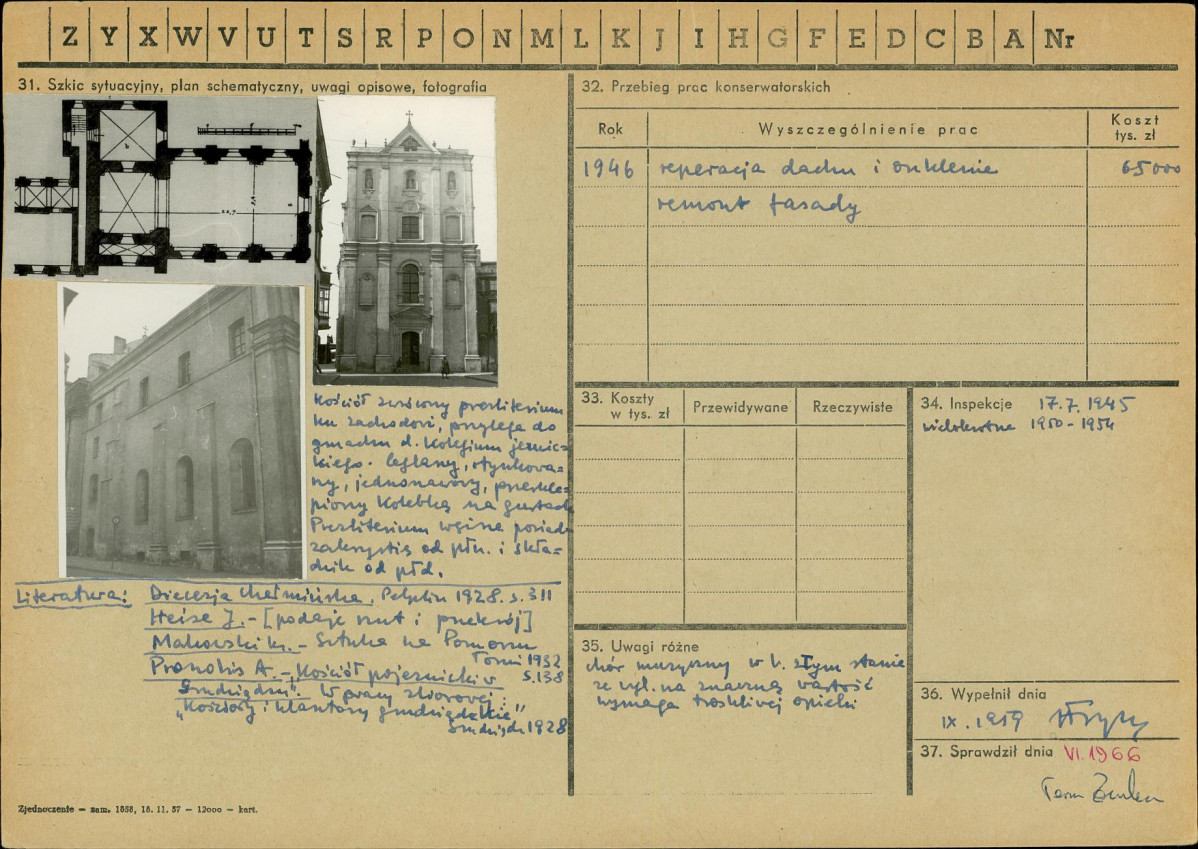 Z Y X W V U T S R P O N M L K J I H G F E D C B A Nr
31. Szkic sytuacyjny, plan schematyczny, uwagi opisowe, fotografia
Kościół zwrócony prezbiterium
ku zachodowi, przylega do
gmachu d. Kolegium jezuic-
kiego. Ceglany, otynkowa-
ny, jednonawowy, przeskle-
piony kolebką na gurtach
Prezbiterium węższe posiada
zakrystię od płn. i skła-
dzik od płd.
Literatura: Diecezja Chełmińska, Pelplin 1928. s. 311
Heise J. - [podaje rzut i przekrój]
Makowski - Sztuka na Pomorzu
Toruń 1932
s. 138
Pronobis A. - "Kościół pojezuicki w
Grudziądzu" - w pracy zbiorowej:
"Kościoły i klasztory grudziądzkie"
Grudziądz 1928
Zjednoczenie — zam. 1858, 18. 11. 57 — 12000 — kart.
32. Przebieg prac konserwatorskich
Rok Wyszczególnienie prac Koszt tys. zł
1946 reperacja dachu i oszklenie 65000
remont fasady
33. Koszty w tys. zł Przewidywane Rzeczywiste
34. Inspekcje 17.7.1945
wielokrotne 1950 - 1954
35. Uwagi różne
chór muzyczny w b. złym stanie
ze wzgl. na znaczną wartość
wymaga troskliwej opieki
36. Wypełnił dnia
IX. 1959
37. Sprawdził dnia VI. 1966